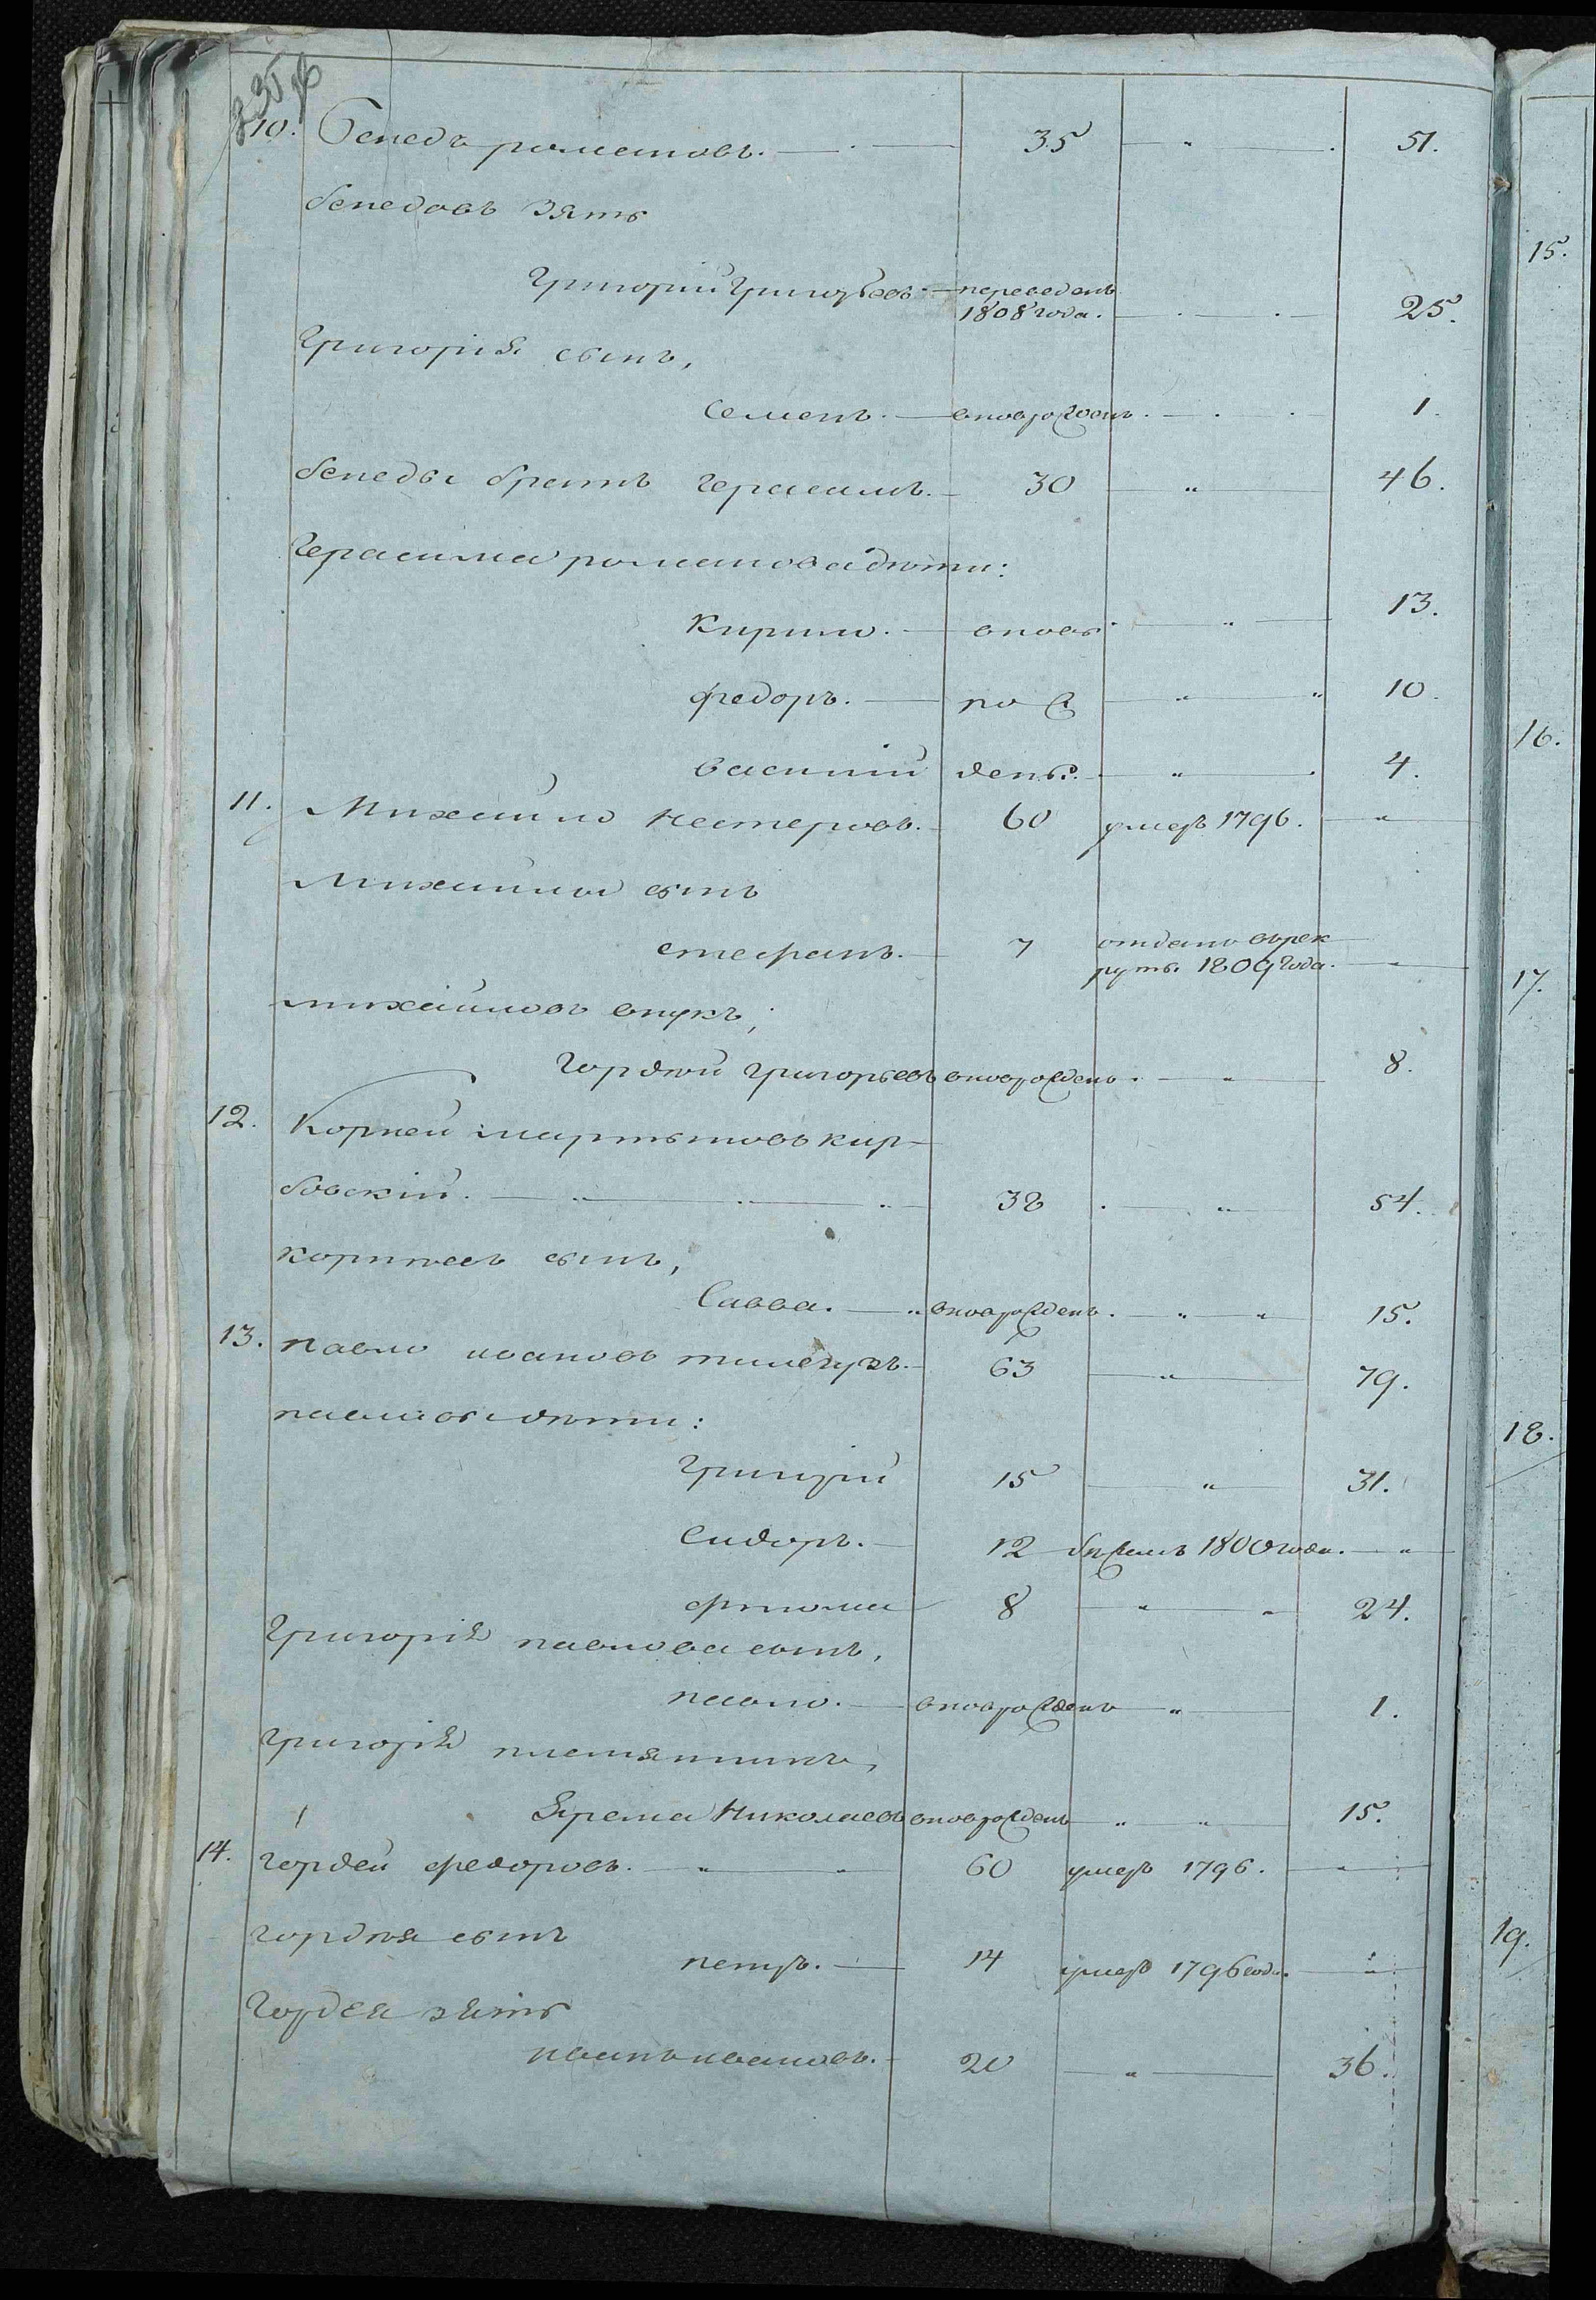 10. Бенедъ романовъ. 35 " 51.
бенедовъ зять
Григорій Григорьевъ переведенъ
1808 года. 25.
Григорія сынъ,
Семенъ. вновьрожденъ. 1.
бенеды братъ Герасимъ. 30 " 46.
Герасима романова дѣти:
Кирило. вновь " 13.
федоръ. рож " " 10.
Василій дены. " 4.
11. Михайло Нестеровъ. 60 умеръ 1796. "
Михайлы сынъ
стефанъ. 7 отданъ въ рек
руты 1809 года. "
михайловъ внукъ,
Гордѣй Григорьевъ вновьрожденъ. " 8.
12. Корней мартыновъ кир-
бовскій. 38 " 54.
корнѣевъ сынъ,
Савва. вновьрожденъ. " " 15.
13. павло ивановъ 63 " 79.
павловы дѣти:
Григорій 15 " 31.
Сидоръ. 12 бѣжалъ 1800 года. "
фтома 8 " " 24.
Григорія павлова сынъ,
павло. вновьрожденъ " 1.
Григорія племянникъ,
Ярема Николаевъ вновьрожденъ " " 15.
14. Гордей федоровъ. " " 60 умеръ 1796. "
Гордѣя сынъ
петръ. 14 умеръ 1796 года. "
Гордея зять
иванъ ивановъ. 20 " 36.
15.
16.
17.
18.
19.